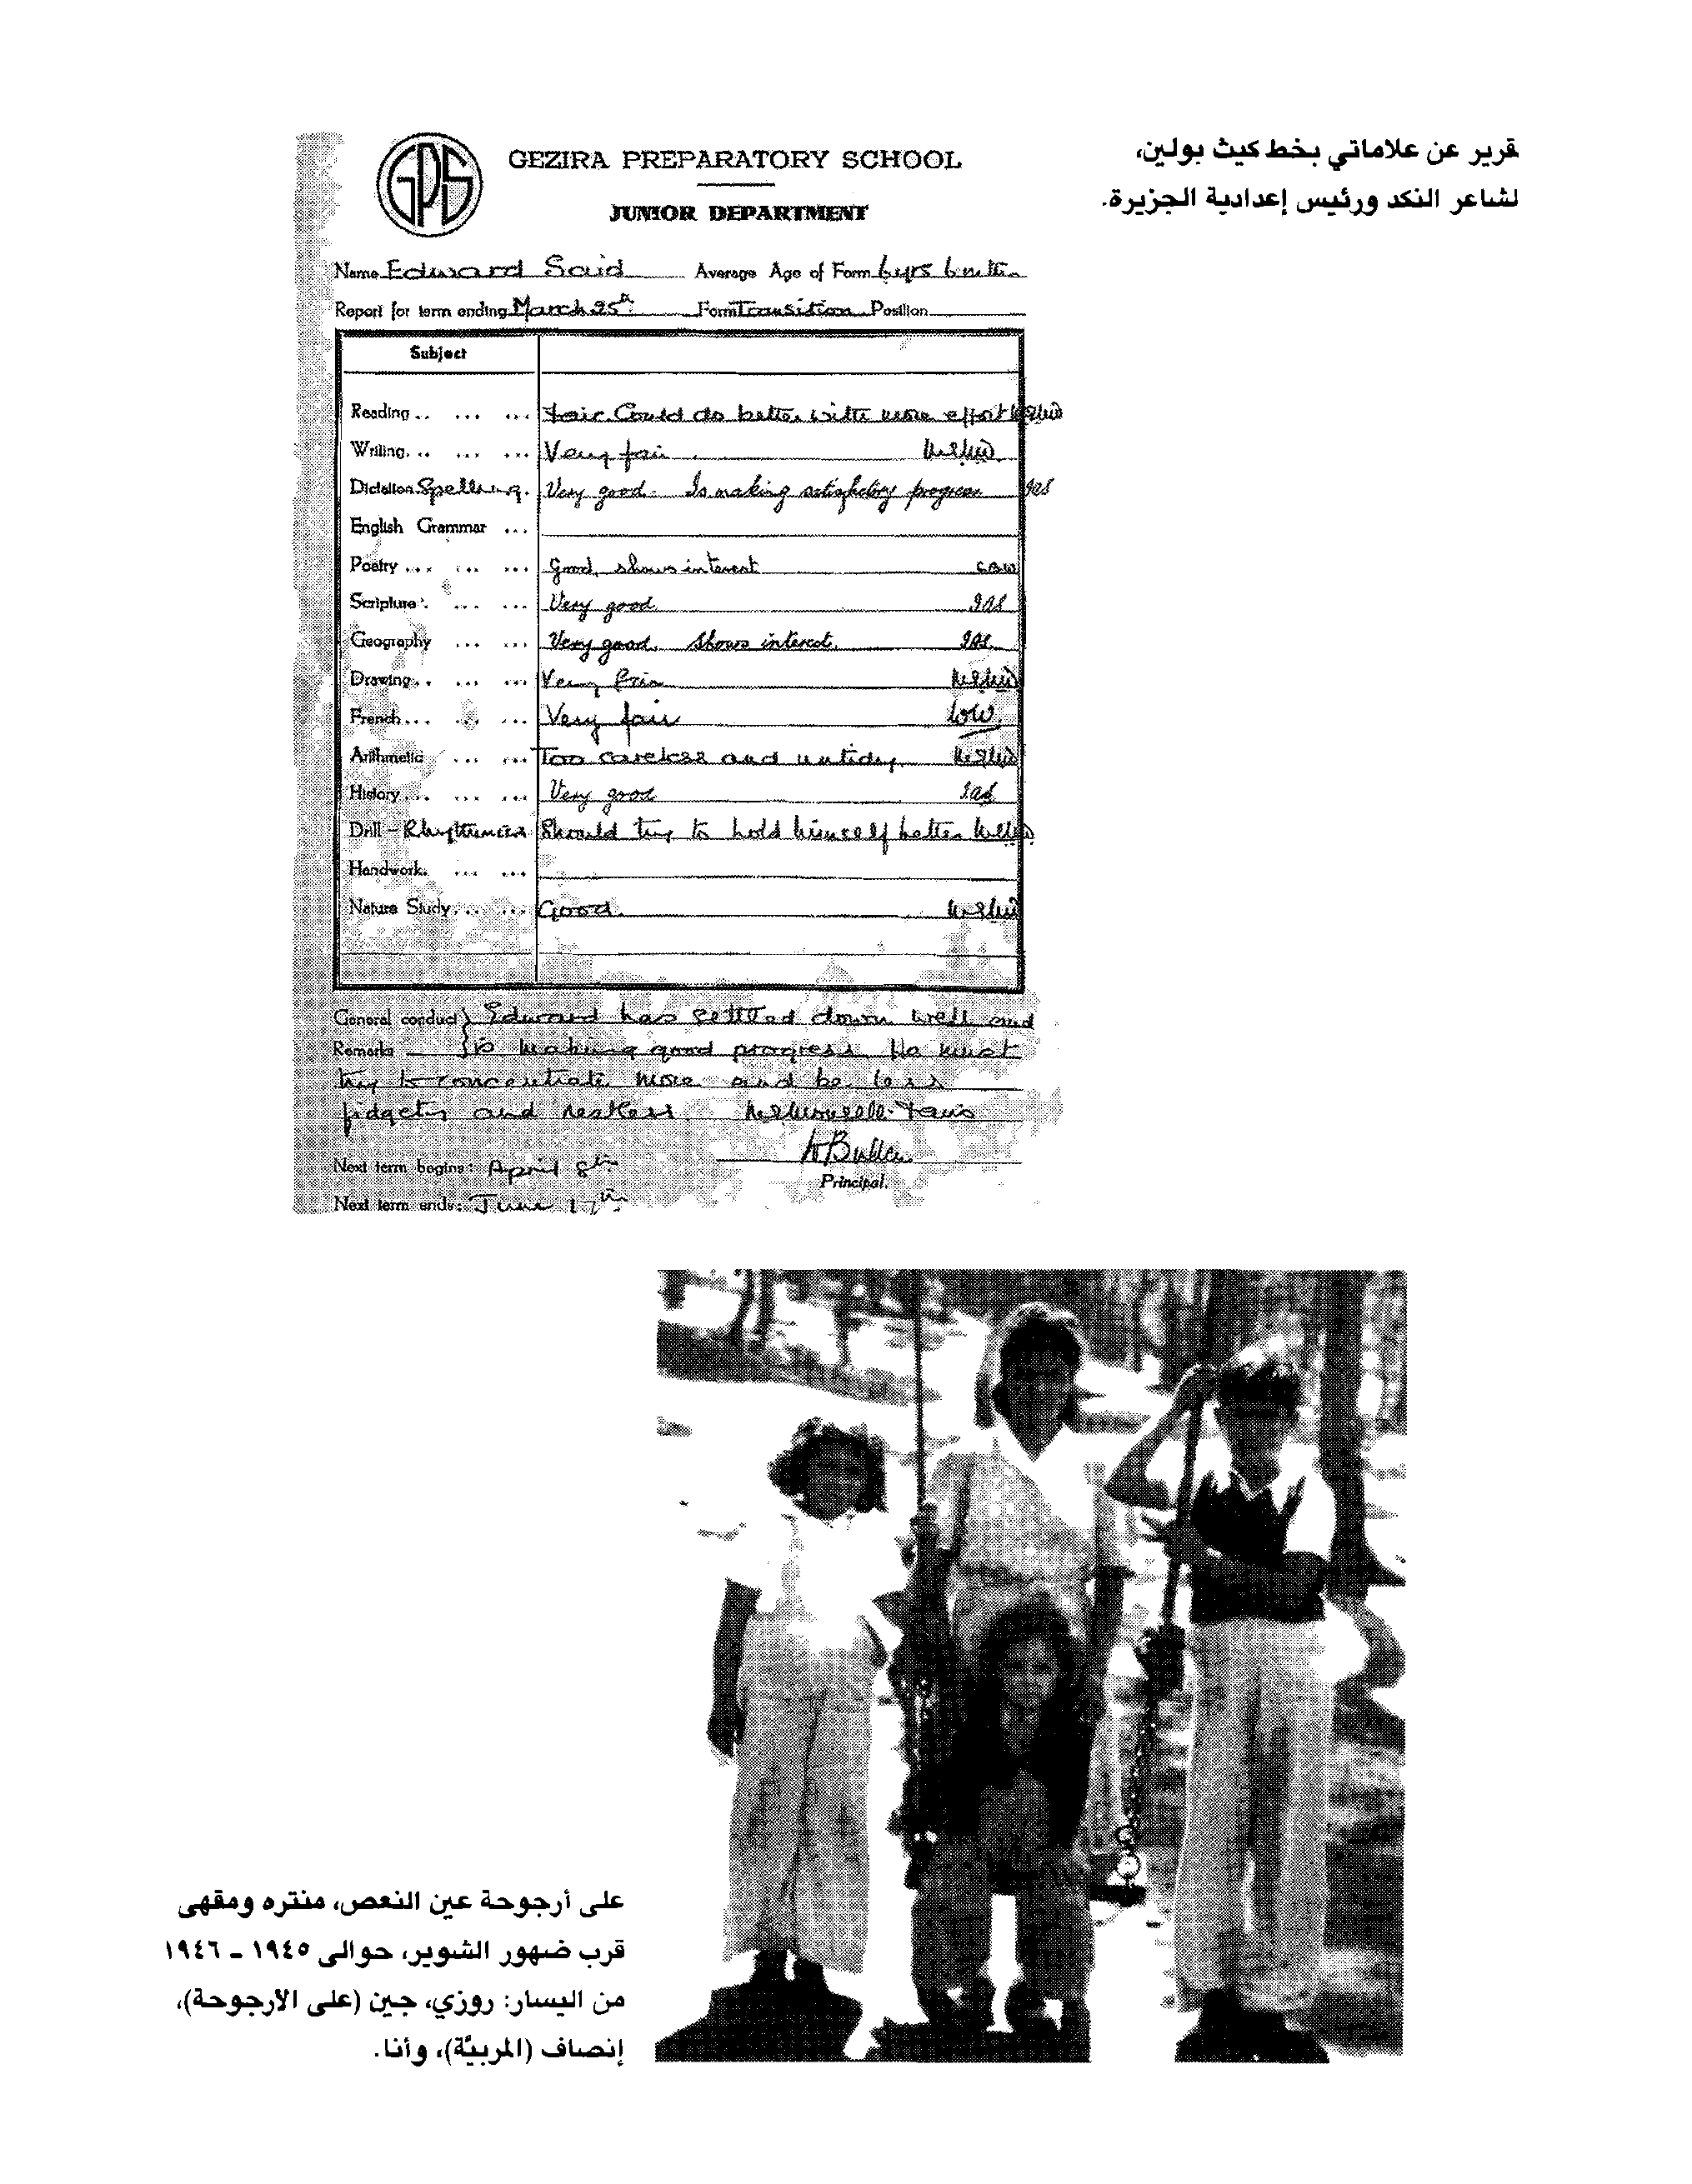 قرير عن علاماتي بخط كيث بولين،
لشاعر النكد ورئيس إعدادية الجزيرة.
GPS
GEZIRA PREPARATORY SCHOOL
JUNIOR DEPARTMENT
Name Edward Said Average Age of Form 6 yrs 6 mths
Report for term ending March 25th Form Transition Position
Subject
Reading Fair. Could do better with more effort
Writing Very fair
Dictation Spelling. Very good. Is making satisfactory progress
English Grammar
Poetry Good, shows interest
Scripture Very good
Geography Very good. Shows interest.
Drawing Very fair
French Very fair
Arithmetic Too careless and untidy
History Very good
Drill - Should try to hold himself better
Handwork
Nature Study Good.
General conduct } Edward has settled down well and
Remarks is making good progress. He must
try to concentrate more and be less
fidgety and restless.
KBullen
Next term begins: April 8th
Principal.
Next term ends: June 17th
على أرجوحة عين النعص، منتره ومقهى
قرب ضهور الشوير، حوالى ١٩٤٥ - ١٩٤٦
من اليسار: روزي، جين (على الأرجوحة)،
إنصاف (المربيّة)، وأنا.